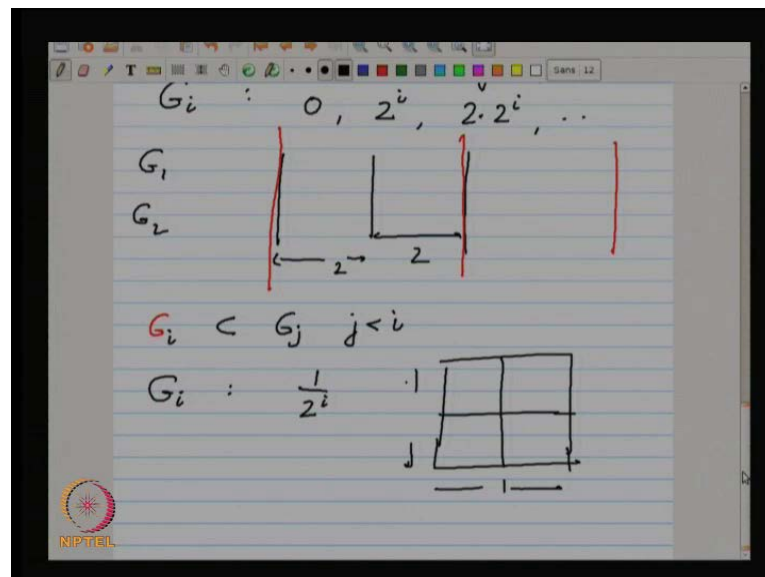 T Sans 12
G_i : 0 , 2^i , 2·2^i , ..
G_1
G_2
2 2
G_i ⊂ G_j j<i
G_i : 1/2^i ·1
1
NPTEL